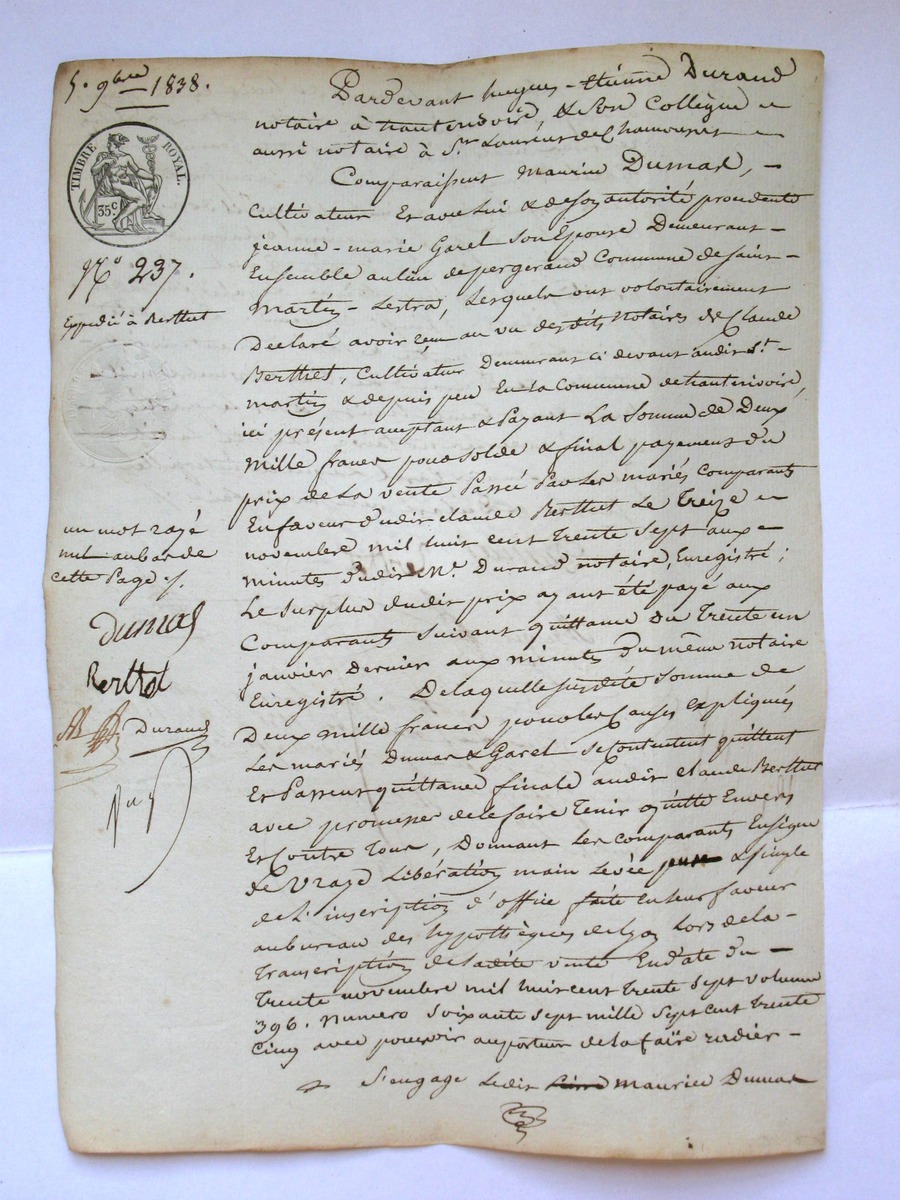 5. 9bre 1838.
TIMBRE ROYAL.
35c
No 237.
Expédié à Berthet
un mot rayé
nul au bas de
cette Page ./.
Dumas
Berthet
Durand
Puy
Pardevant hugues-Etienne Durand
notaire à hauterivoire, & son Collègue
aussi notaire à St Laurent de Chamousset
Comparaissent Maurice Dumas,
Cultivateur Et avec lui & de son autorité procedente
jeanne-marie Garel Son Epouse Demeurant
Ensemble au lieu de pergeraud Commune de Saint-
Martin-Lestra, Lesquels ont volontairement
Declaré avoir reçu au vu desdits Notaires de Claude
Berthet, Cultivateur Demeurant ci devant audit St-
martin & depuis peu En la Commune de hauterivoire,
ici présent acceptant & Payant La Somme de Deux
Mille francs pour solde & final payement du
prix de La vente Passée Par Les mariés Comparants
En faveur dudit Claude Berthet Le Treize
novembre mil huit cent trente Sept aux
minutes dudit Me Durand notaire, Enregistré;
Le surplus dudit prix ayant été payé aux
Comparants Suivant quittance du Trente un
janvier Dernier aux minutes du même notaire
Enregistré. De laquelle susdite Somme de
Deux mille francs pour les Causes expliquées
Les mariés Dumas & Garel se Contentent quittent
Et Passent quittance finale audit Claude Berthet
avec promesse de le faire Tenir quitte Envers
Et Contre Tous, Donnant Les comparants En signe
de vraye Libération main Levée pure & simple
de L'inscription d'office faite En leur faveur
au bureau des hypothèques de Lyon Lors de la
Transcription de ladite vente En date du
Trente novembre mil huit cent trente sept volume
396. numero Soixante sept mille sept cent trente
Cinq avec pouvoir au porteur de la faire radier
S'engage Ledit Maurice Dumas